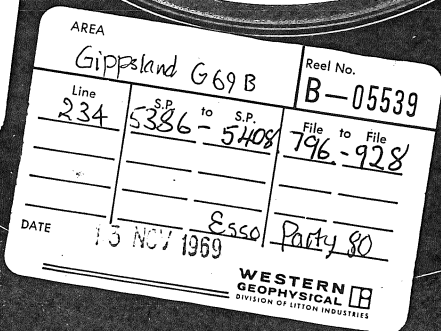 AREA
Gippsland G69B
Reel No.
B-05539
Line S.P. to S.P. File to File
234 5386 - 5408 796 - 928
Esso Party 80
DATE 13 NOV 1969
WESTERN
GEOPHYSICAL
DIVISION OF LITTON INDUSTRIES